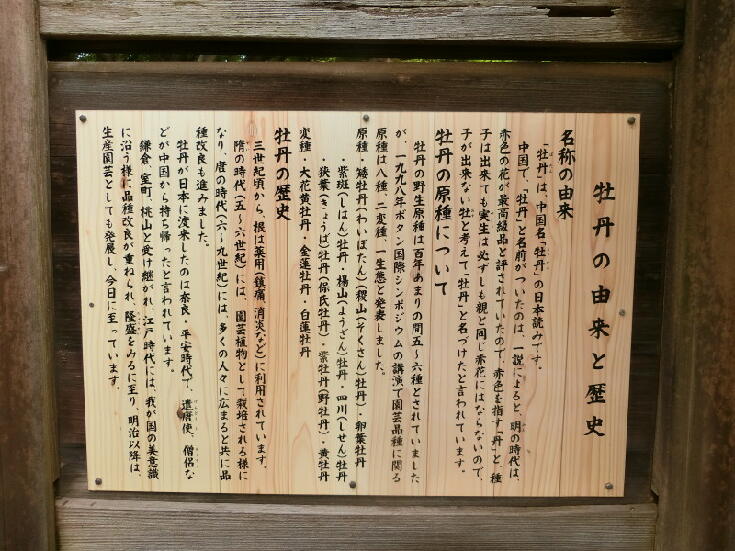 牡丹の由来と歴史
名称の由来
「牡丹」は、中国名「牡丹」の日本読みです。
中国で、「牡丹」と名前がついたのは、一説によると、明の時代は、
赤色の花が最高級品と評されていたので、赤色を指す「丹」と、種
子は出来ても実生は必ずしも親と同じ赤花にはならないので、
子が出来ない牡と考えて、「牡丹」と名づけたと言われています。
牡丹の原種について
牡丹の野生原種は百年あまりの間五~六種とされていました
が、一九九八年ボタン国際シンポジウムの講演で園芸品種に関る
原種は八種、二変種、一生態と発表しました。
原種・矮牡丹(わいぼたん)稷山(そくさん)牡丹・卵葉牡丹
・紫斑(しはん)牡丹・楊山(ようざん)牡丹・四川(しせん)牡丹
・狭葉(きょうば)牡丹(保氏牡丹)・紫牡丹(野牡丹)・黄牡丹
変種・大花黄牡丹・金蓮牡丹・白蓮牡丹
牡丹の歴史
三世紀頃から、根は薬用(鎮痛、消炎など)に利用されています。
隋の時代(五~六世紀)には、園芸植物として栽培される様に
なり、唐の時代(六~九世紀)には、多くの人々に広まると共に品
種改良も進みました。
牡丹が日本に渡来したのは奈良・平安時代で、遣唐使、僧侶な
どが中国から持ち帰ったと言われています。
鎌倉、室町、桃山と受け継がれ、江戸時代には、我が国の美意識
に沿う様に品種改良が重ねられ、隆盛をみるに至り、明治以降は、
生産園芸としても発展し、今日に至っています。